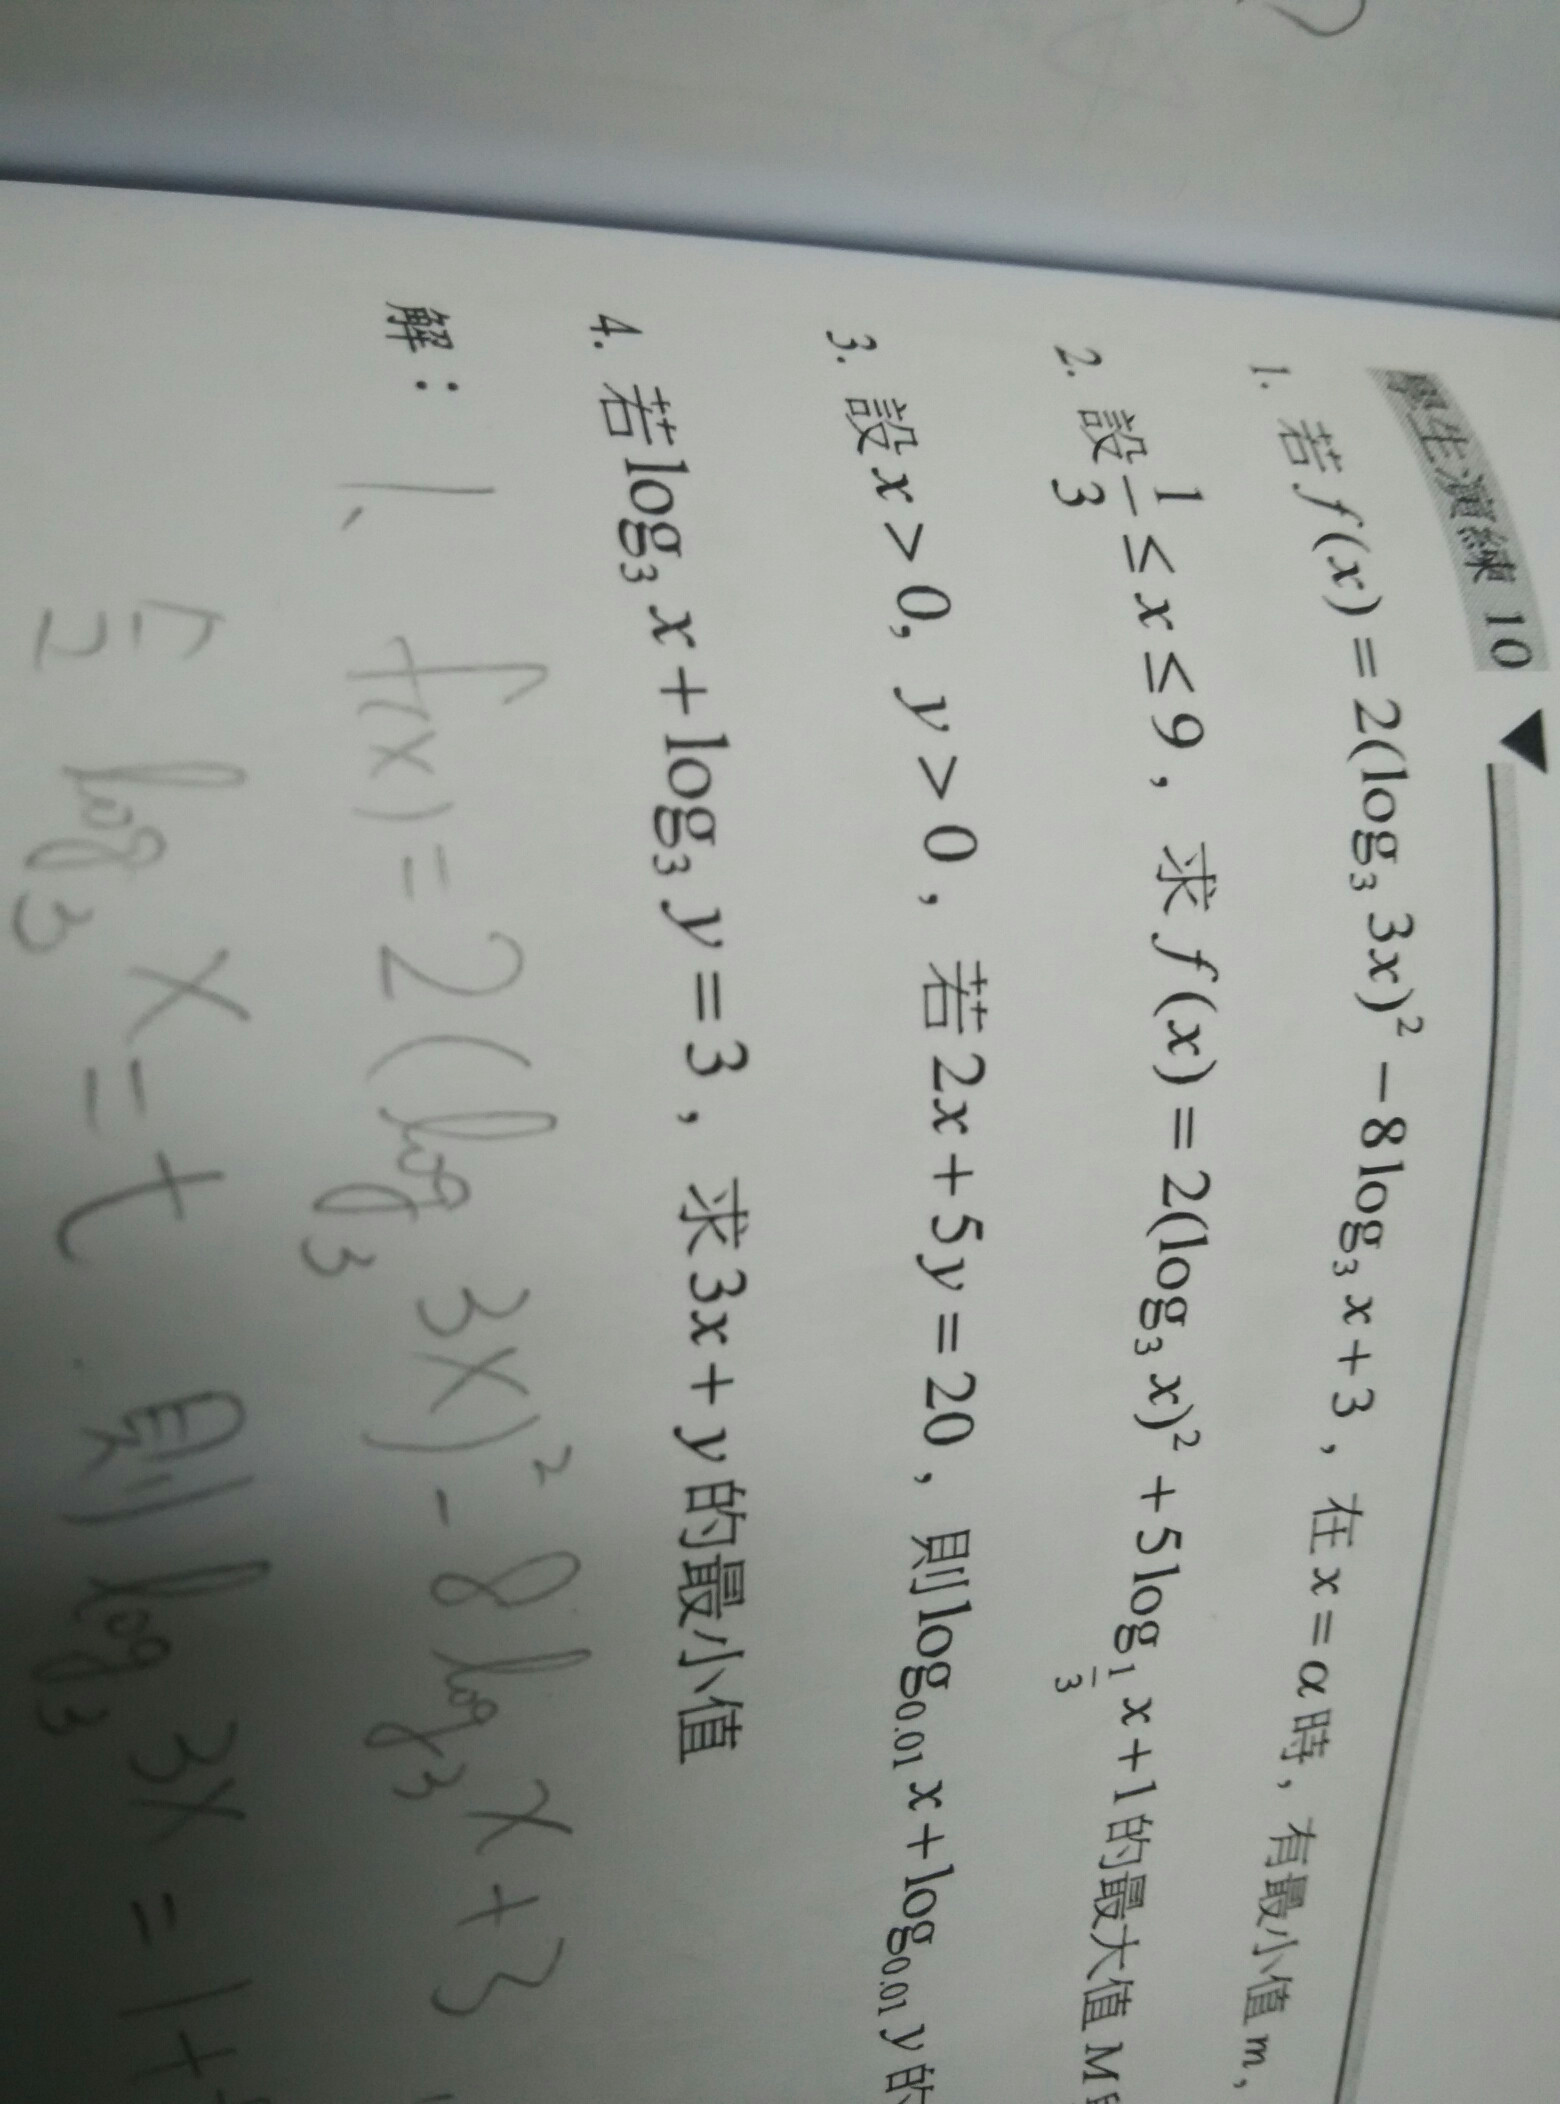 學生演練 10
1. 若 f(x) = 2(log₃ 3x)² − 8log₃ x + 3，在 x = α 時，有最小值 m，
2. 設 1/3 ≤ x ≤ 9，求 f(x) = 2(log₃ x)² + 5log_{1/3} x + 1 的最大值 M
3. 設 x > 0, y > 0，若 2x + 5y = 20，則 log₀.₀₁ x + log₀.₀₁ y 的
4. 若 log₃ x + log₃ y = 3，求 3x + y 的最小值
解： 1、 f(x) = 2(log₃ 3x)² - 8log₃ x + 3
log₃ x = t 則 log₃ 3x = 1 +